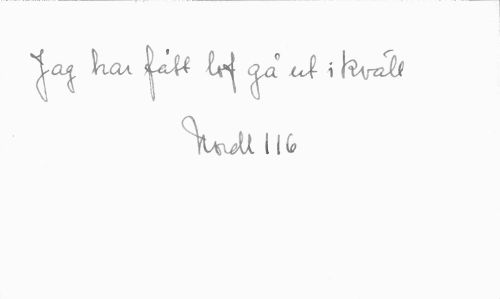 Jag har fått lof gå ut i kväll
Nordl 116